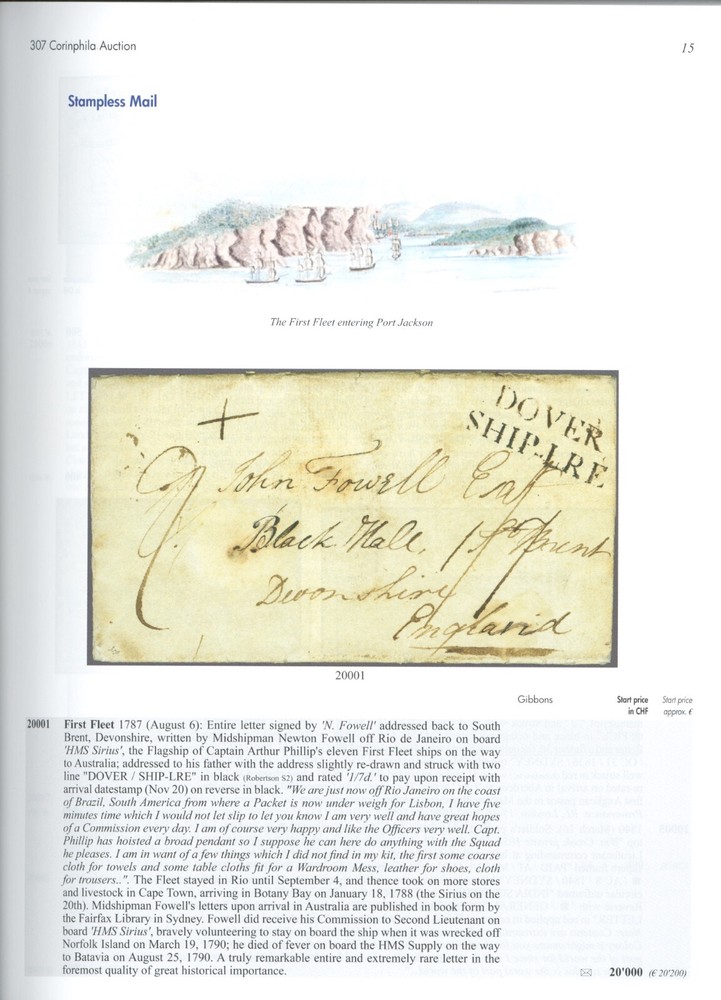 307 Corinphila Auction
15
Stampless Mail
The First Fleet entering Port Jackson
DOVER
SHIP-LRE
John Fowell Esqr
Black Hall,
Brent
Devonshire
England
20001
Gibbons
Start price
in CHF
Start price
approx. €
20001 First Fleet 1787 (August 6): Entire letter signed by 'N. Fowell' addressed back to South
Brent, Devonshire, written by Midshipman Newton Fowell off Rio de Janeiro on board
'HMS Sirius', the Flagship of Captain Arthur Phillip's eleven First Fleet ships on the way
to Australia; addressed to his father with the address slightly re-drawn and struck with two
line "DOVER / SHIP-LRE" in black (Robertson S2) and rated '1/7d.' to pay upon receipt with
arrival datestamp (Nov 20) on reverse in black. "We are just now off Rio Janeiro on the coast
of Brazil, South America from where a Packet is now under weigh for Lisbon, I have five
minutes time which I would not let slip to let you know I am very well and have great hopes
of a Commission every day. I am of course very happy and like the Officers very well. Capt.
Phillip has hoisted a broad pendant so I suppose he can here do anything with the Squad
he pleases. I am in want of a few things which I did not find in my kit, the first some coarse
cloth for towels and some table cloths fit for a Wardroom Mess, leather for shoes, cloth
for trousers..". The Fleet stayed in Rio until September 4, and thence took on more stores
and livestock in Cape Town, arriving in Botany Bay on January 18, 1788 (the Sirius on the
20th). Midshipman Fowell's letters upon arrival in Australia are published in book form by
the Fairfax Library in Sydney. Fowell did receive his Commission to Second Lieutenant on
board 'HMS Sirius', bravely volunteering to stay on board the ship when it was wrecked off
Norfolk Island on March 19, 1790; he died of fever on board the HMS Supply on the way
to Batavia on August 25, 1790. A truly remarkable entire and extremely rare letter in the
foremost quality of great historical importance.
20'000 (€ 20'200)